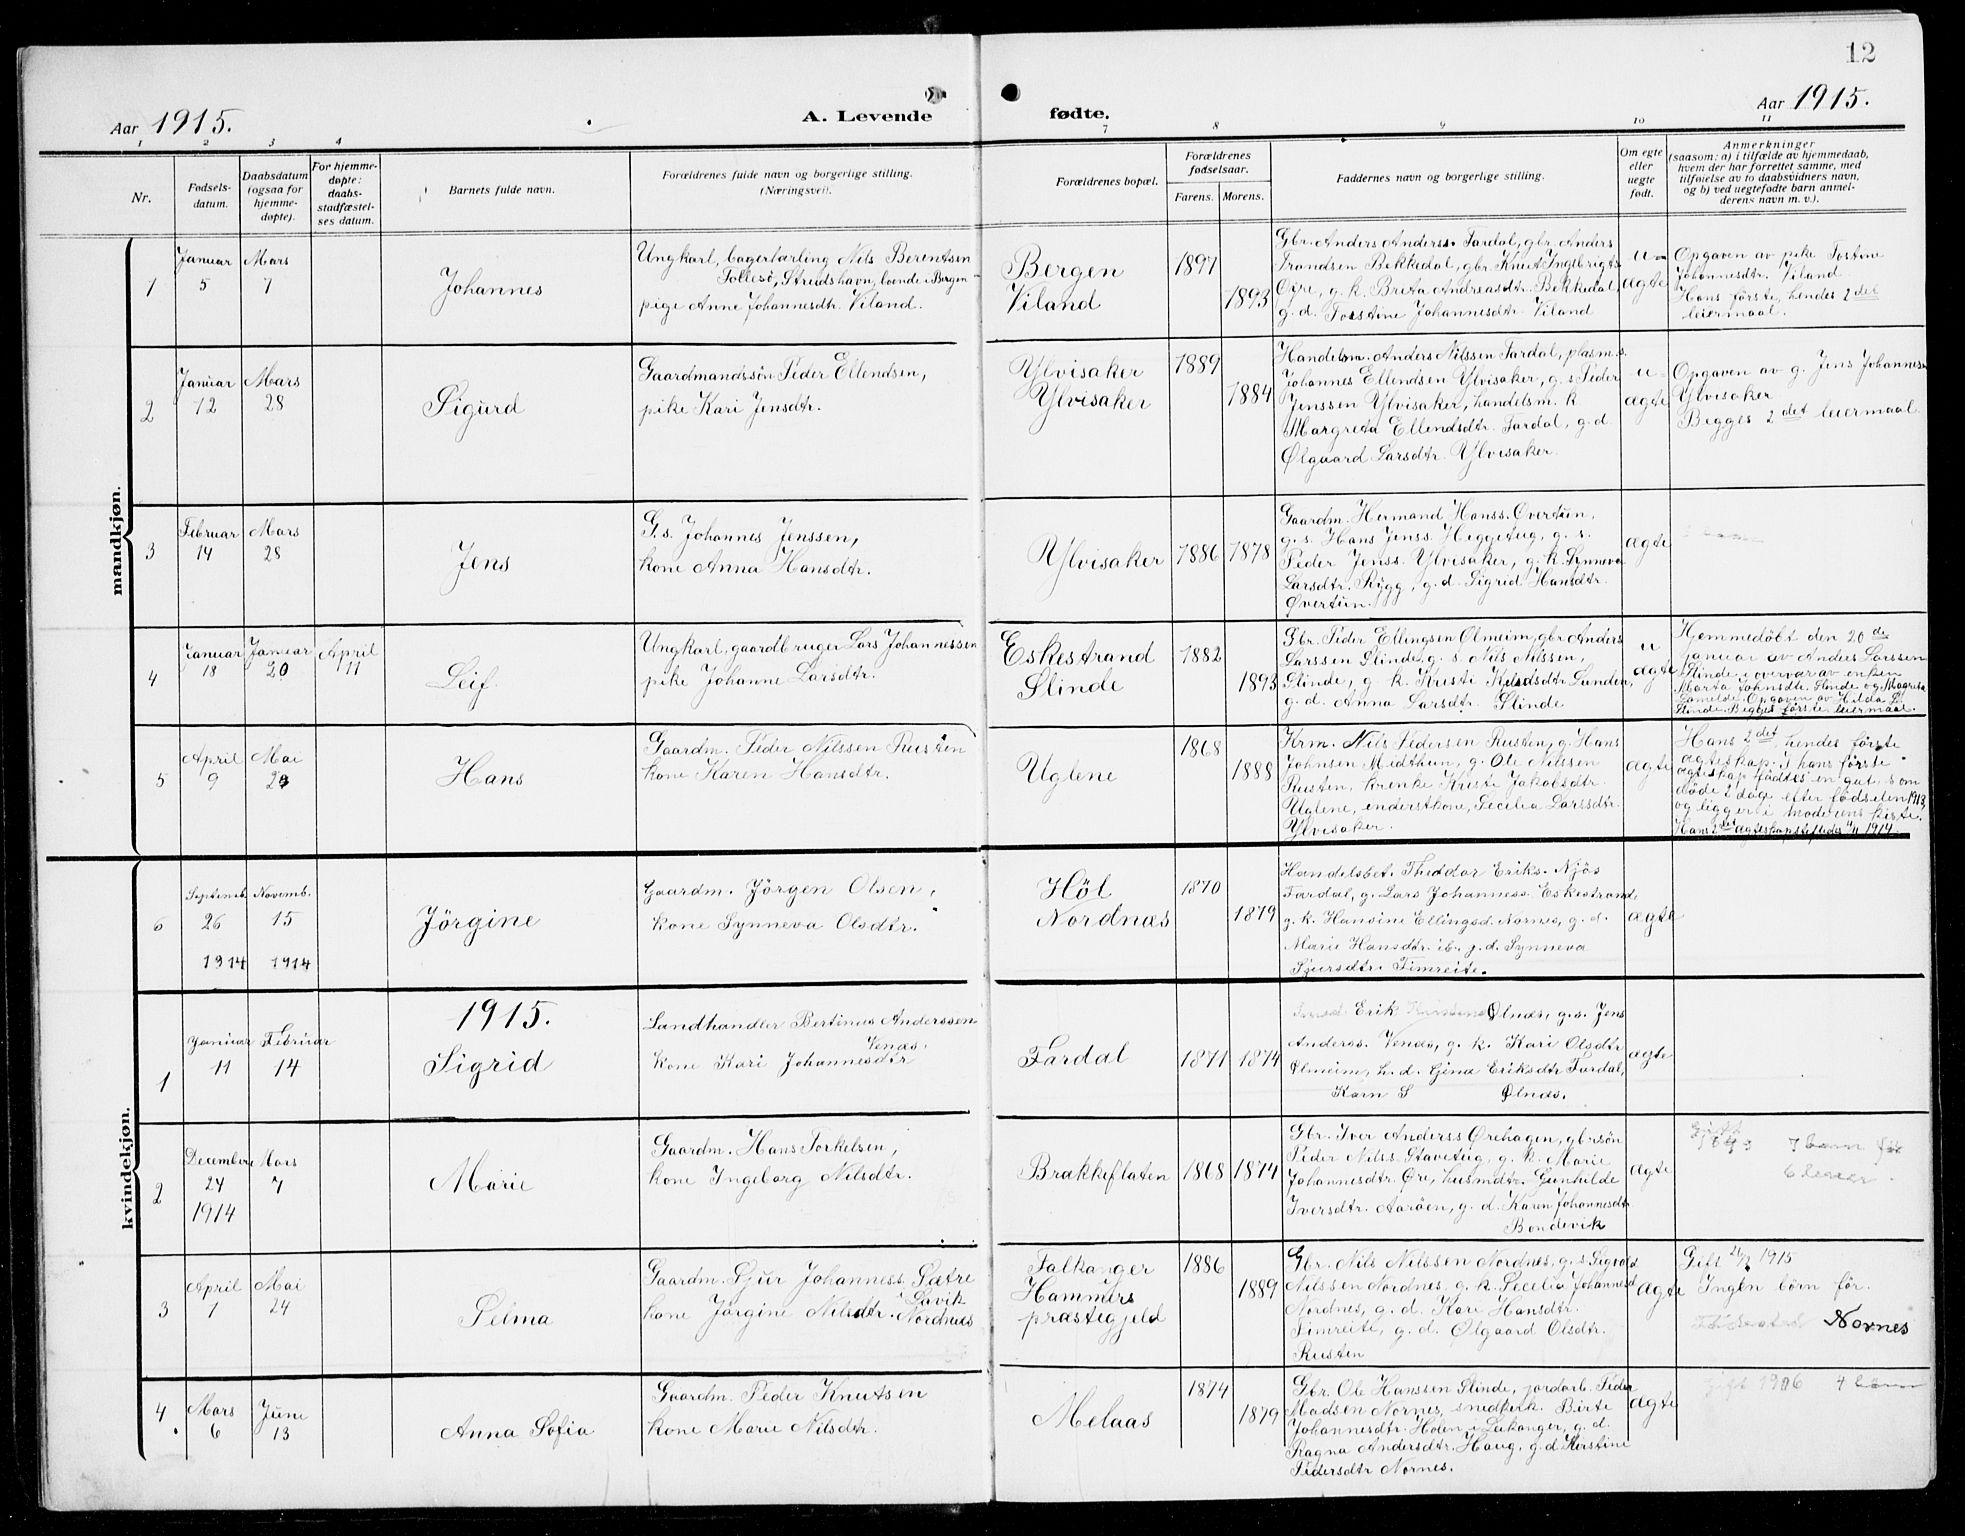 12
Aar 1915.
A. Levende
fødte.
Aar 1915.
1 2 3 4 7 8 9 10 11
Nr.
Fødsels-
datum.
Daabsdatum
(ogsaa for
hjemme-
døpte).
For hjemme-
døpte:
daabs-
stadfæstel-
ses datum.
Barnets fulde navn.
Forældrenes fulde navn og borgerlige stilling.
(Næringsvei).
Forældrenes bopæl.
Forældrenes
fødselsaar.
Farens. Morens.
Faddernes navn og borgerlige stilling.
Om egte
eller
uegte
født.
Anmerkninger
(saasom: a) i tilfælde av hjemmedaab,
hvem der har forrettet samme, med
tilføielse av to daabsvidners navn,
og b) ved uegtefødte barn anmel-
derens navn m. v.).
mandkjøn.
1
Januar
5
Mars
7
Johannes
Ungkarl, bagerlærling Nils Berentsen
Tollesö, Strudshavn, boende i Bergen
pige Anne Johannesdtr. Viland.
Bergen
Viland
1897
1893
Gbr. Anders Anderss. Fardal, gbr. Anders
Trondsen Bekkedal, gbr. Knut Ingebrigts.
Øyre, g. k. Breta Andreasdtr. Bekkedal,
g. d. Torstine Johannesdtr. Viland
u-
ægte
Opgaven av pike Tostine
Johannesdtr. Viland
Hans første, hendes 2det
leiermaal.
2
Januar
12
Mars
28
Sigurd
Gaardmandssøn Peder Ellendsen,
pike Kari Jensdtr.
Ylvisaker
Ylvisaker
1889
1884
Handelsm. Anders Nilssen Fardal, plasm. s.
Johannes Ellendsen Ylvisaker, g. s. Peder
Jenssen Ylvisaker, handelsm. k.
Margreta Ellendsdtr. Fardal, g. d.
Ølgaard Larsdtr. Ylvisaker.
u-
ægte
Opgaven av g. Jens Johannesen
Ylvisaker
Begges 2det leiermaal.
3
Februar
14
Mars
28
Jens
G. s. Johannes Jenssen,
kone Anna Hansdtr.
Ylvisaker
1886 1878
Gaardm. Hermand Hanss. Overtun,
g. s. Hans Jenss. Heggetug, g. s.
Peder Jenss. Ylvisaker, g. k. Synneva
Larsdtr. Rygg, g. d. Sigrid Hansdtr.
Øvertun.
ægte
4
Januar
18
Januar
20
April
11
Leif.
Ungkarl, gaardbruger Lars Johannessen
pike Johanne Larsdtr.
Eskestrand
Slinde
1882
1893
Gbr. Peder Ellingsen Olmeim, gbr. Anders
Larssen Slinde, g. s. Nils Nilssen,
Slinde, g. k. Kriste Sunden,
g. d. Anna Larsdtr. Slinde
u
ægte
Hemmedøbt den 20de
Januar av Anders Larssen
Slinde i overvær av enken
Marta Johnsdtr. Slinde og
Opgaven av Hilda
Slinde. Begges første leiermaal.
5
April
9
Mai
23
Hans
Gaardm. Peder Nilssen Rusten
kone Karen Hansdtr.
Uglene
1868
1888
Krm. Nils Pedersen Rusten, g. Hans
Johnsen Midthun, g. Ole Nilssen
Rusten, Kriste Jakobsdtr.
Uglene, Cecilia Larssdtr.
Ylvisaker.
ægte
Hans 2det, hendes første
ægteskap. I hans første
ægteskap fødtes en gut, som
døde 2 dag efter fødselen 1913,
og ligger i moderens kiste.
Hans 2det ægteskap 1914
kvindekjøn.
6
Septemb.
26
1914
Novemb.
15
1914
Jörgine
Gaardm. Jörgen Olsen,
kone Synneva Olsdtr.
Høl
Nordnæs
1870
1879
Handelsbet. Theodor Eriks. Njøs
Fardal, g. Lars Johanness. Eskestrand,
g. k. Hansine Ellingsd. Nornes, g. d.
Marie Hansdtr. ib., g. d. Synneva
Sjursdtr. Timreite.
ægte
1915.
1
Januar
11
Februar
14
Sigrid
Landhandler Bertinus Anderssen
Venæs,
kone Kari Johannesdtr
Fardal
1871 1874
Erik Ølnæs, g. s. Jens
Anderss. Venæs, g. k. Kari Olsdtr
Olmeim, h. d. Gina Eriksdtr Fardal,
Karn S Ølnæs.
ægte
2
Decembere
24
1914
Mars
7
Marie
Gaardm. Hans Torkelsen,
kone Ingeborg Nilsdtr.
Brakkeflaten
1868 1874
Gbr. Iver Anderss Ørehagen, gbrsøn
Peder Nilss Stavetug, g. k. Marie
Johannesdtr. Øre, husmdtr. Gunhilde
Iversdtr. Aarøen, g. d. Karen Johannesdtr
Bondevik
ægte
Gift
1893 7 barn før
6 lever.
3
April
1
Mai
24
Selma
Gaardm. Sjur Johanness. Sætre
i Lavik
kone Jörgine Nilsdtr. Nordnæs
Falkanger
Hammers
præstegjeld
1886
1889
Gbr. Nils Nilssen Nordnes, g. s. Sigvald
Nilssen Nordnes, g. k. Cecelia Johannesd.
Nordnes, g. d. Kari Hansdtr.
Timreite, g. d. Ølgaard Olsdtr.
Rusten
ægte
Gift 1915
Ingen børn før.
Nornes
4
Mars
6
June
13
Anna Sofia
Gaardm. Peder Knutsen
kone Marie Nilsdtr.
Melaas
1874
1879
Gbr. Ole Hanssen Slinde, jordarb. Peder
Madsen Nornes, snedkerk. Birte
Johannesdtr. Holen i Leikanger, g. d.
Ragna Andersdtr. Haug, g. d. Kirstine
Pedersdtr Nornes.
ægte
Gift 1906 4 barn